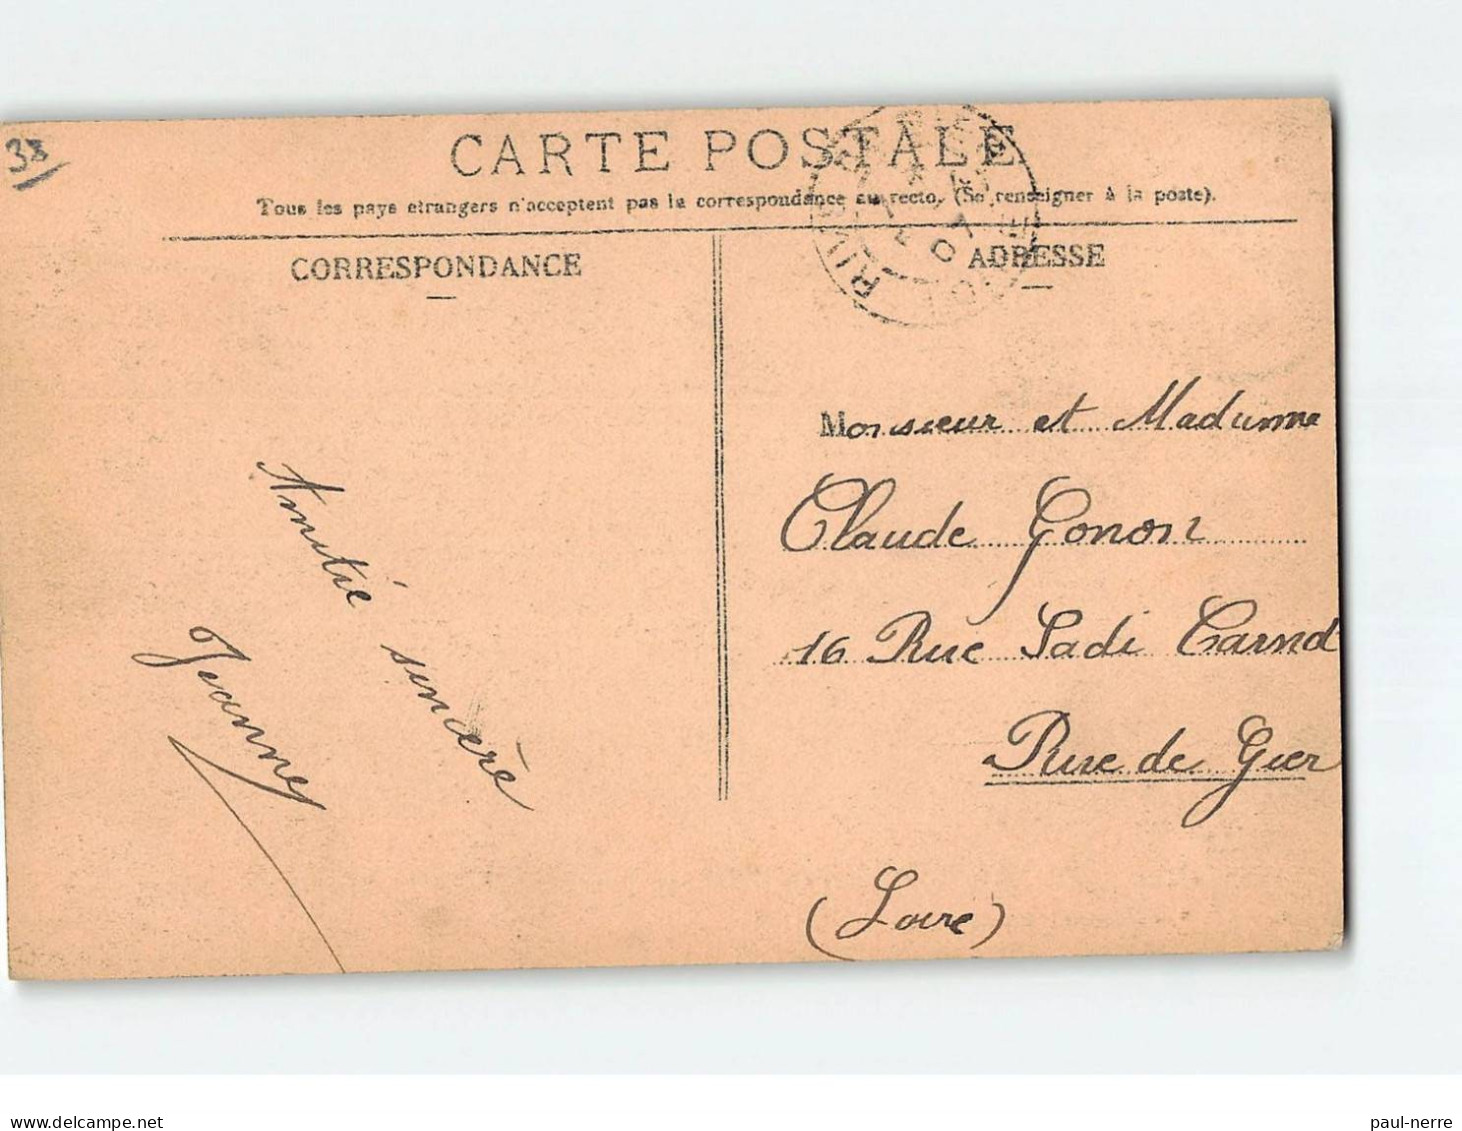 38
CARTE POSTALE
Tous les pays etrangers n'acceptent pas la correspondance au recto. (Se renseigner à la poste).
CORRESPONDANCE
Amitié sincère
Jeanne
ADRESSE
Monsieur et Madame
Claude Gonon
16 Rue Sadi Carnot
Rive de Gier
(Loire)
delcampe.net
paul-nerre